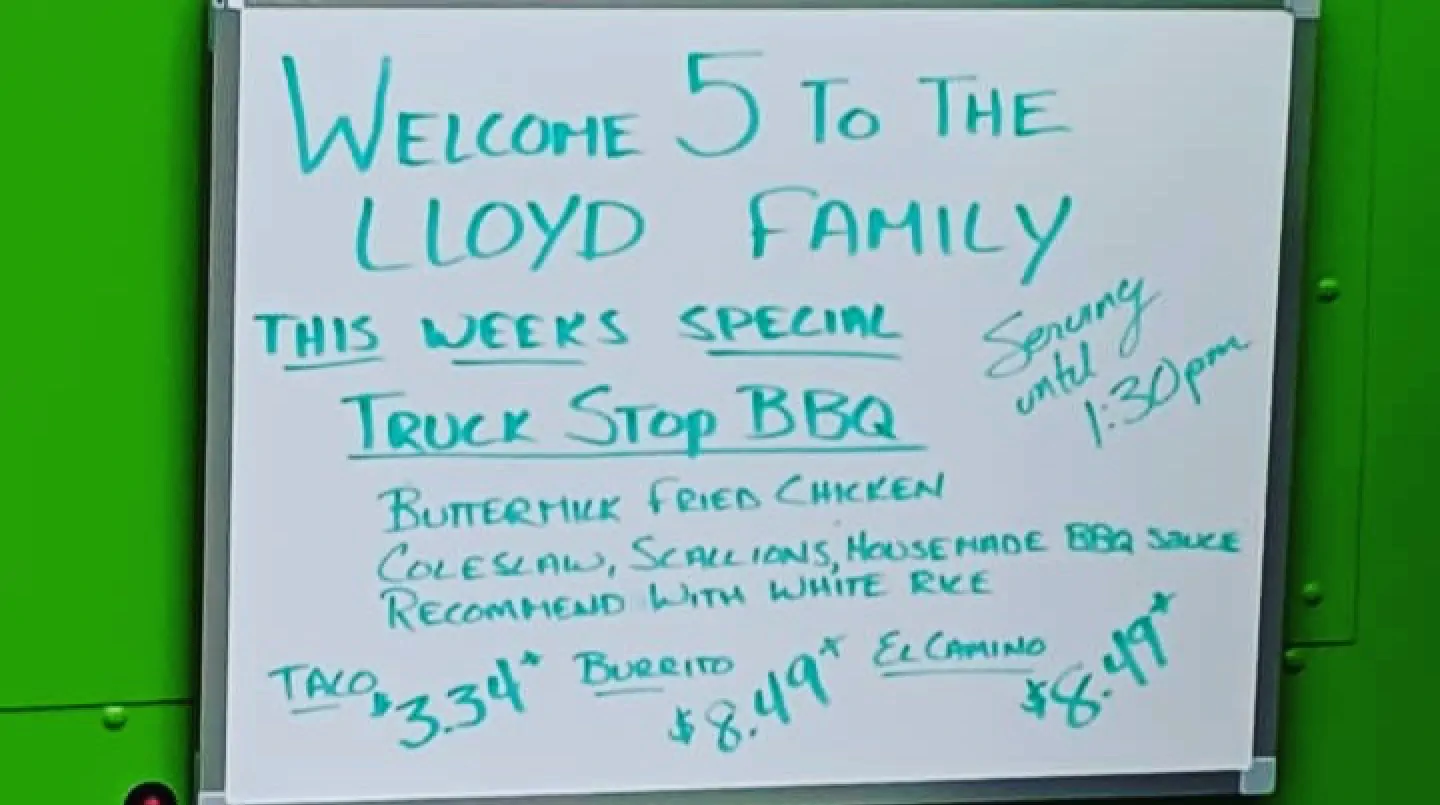 WELCOME 5 TO THE
LLOYD FAMILY
THIS WEEKS SPECIAL
Serving
until
1:30pm
TRUCK STOP BBQ
BUTTERMILK FRIED CHICKEN
COLESLAW, SCALLIONS, HOUSEMADE BBQ SAUCE
RECOMMEND WITH WHITE RICE
TACO $3.34* BURRITO $8.49* EL CAMINO $8.49*